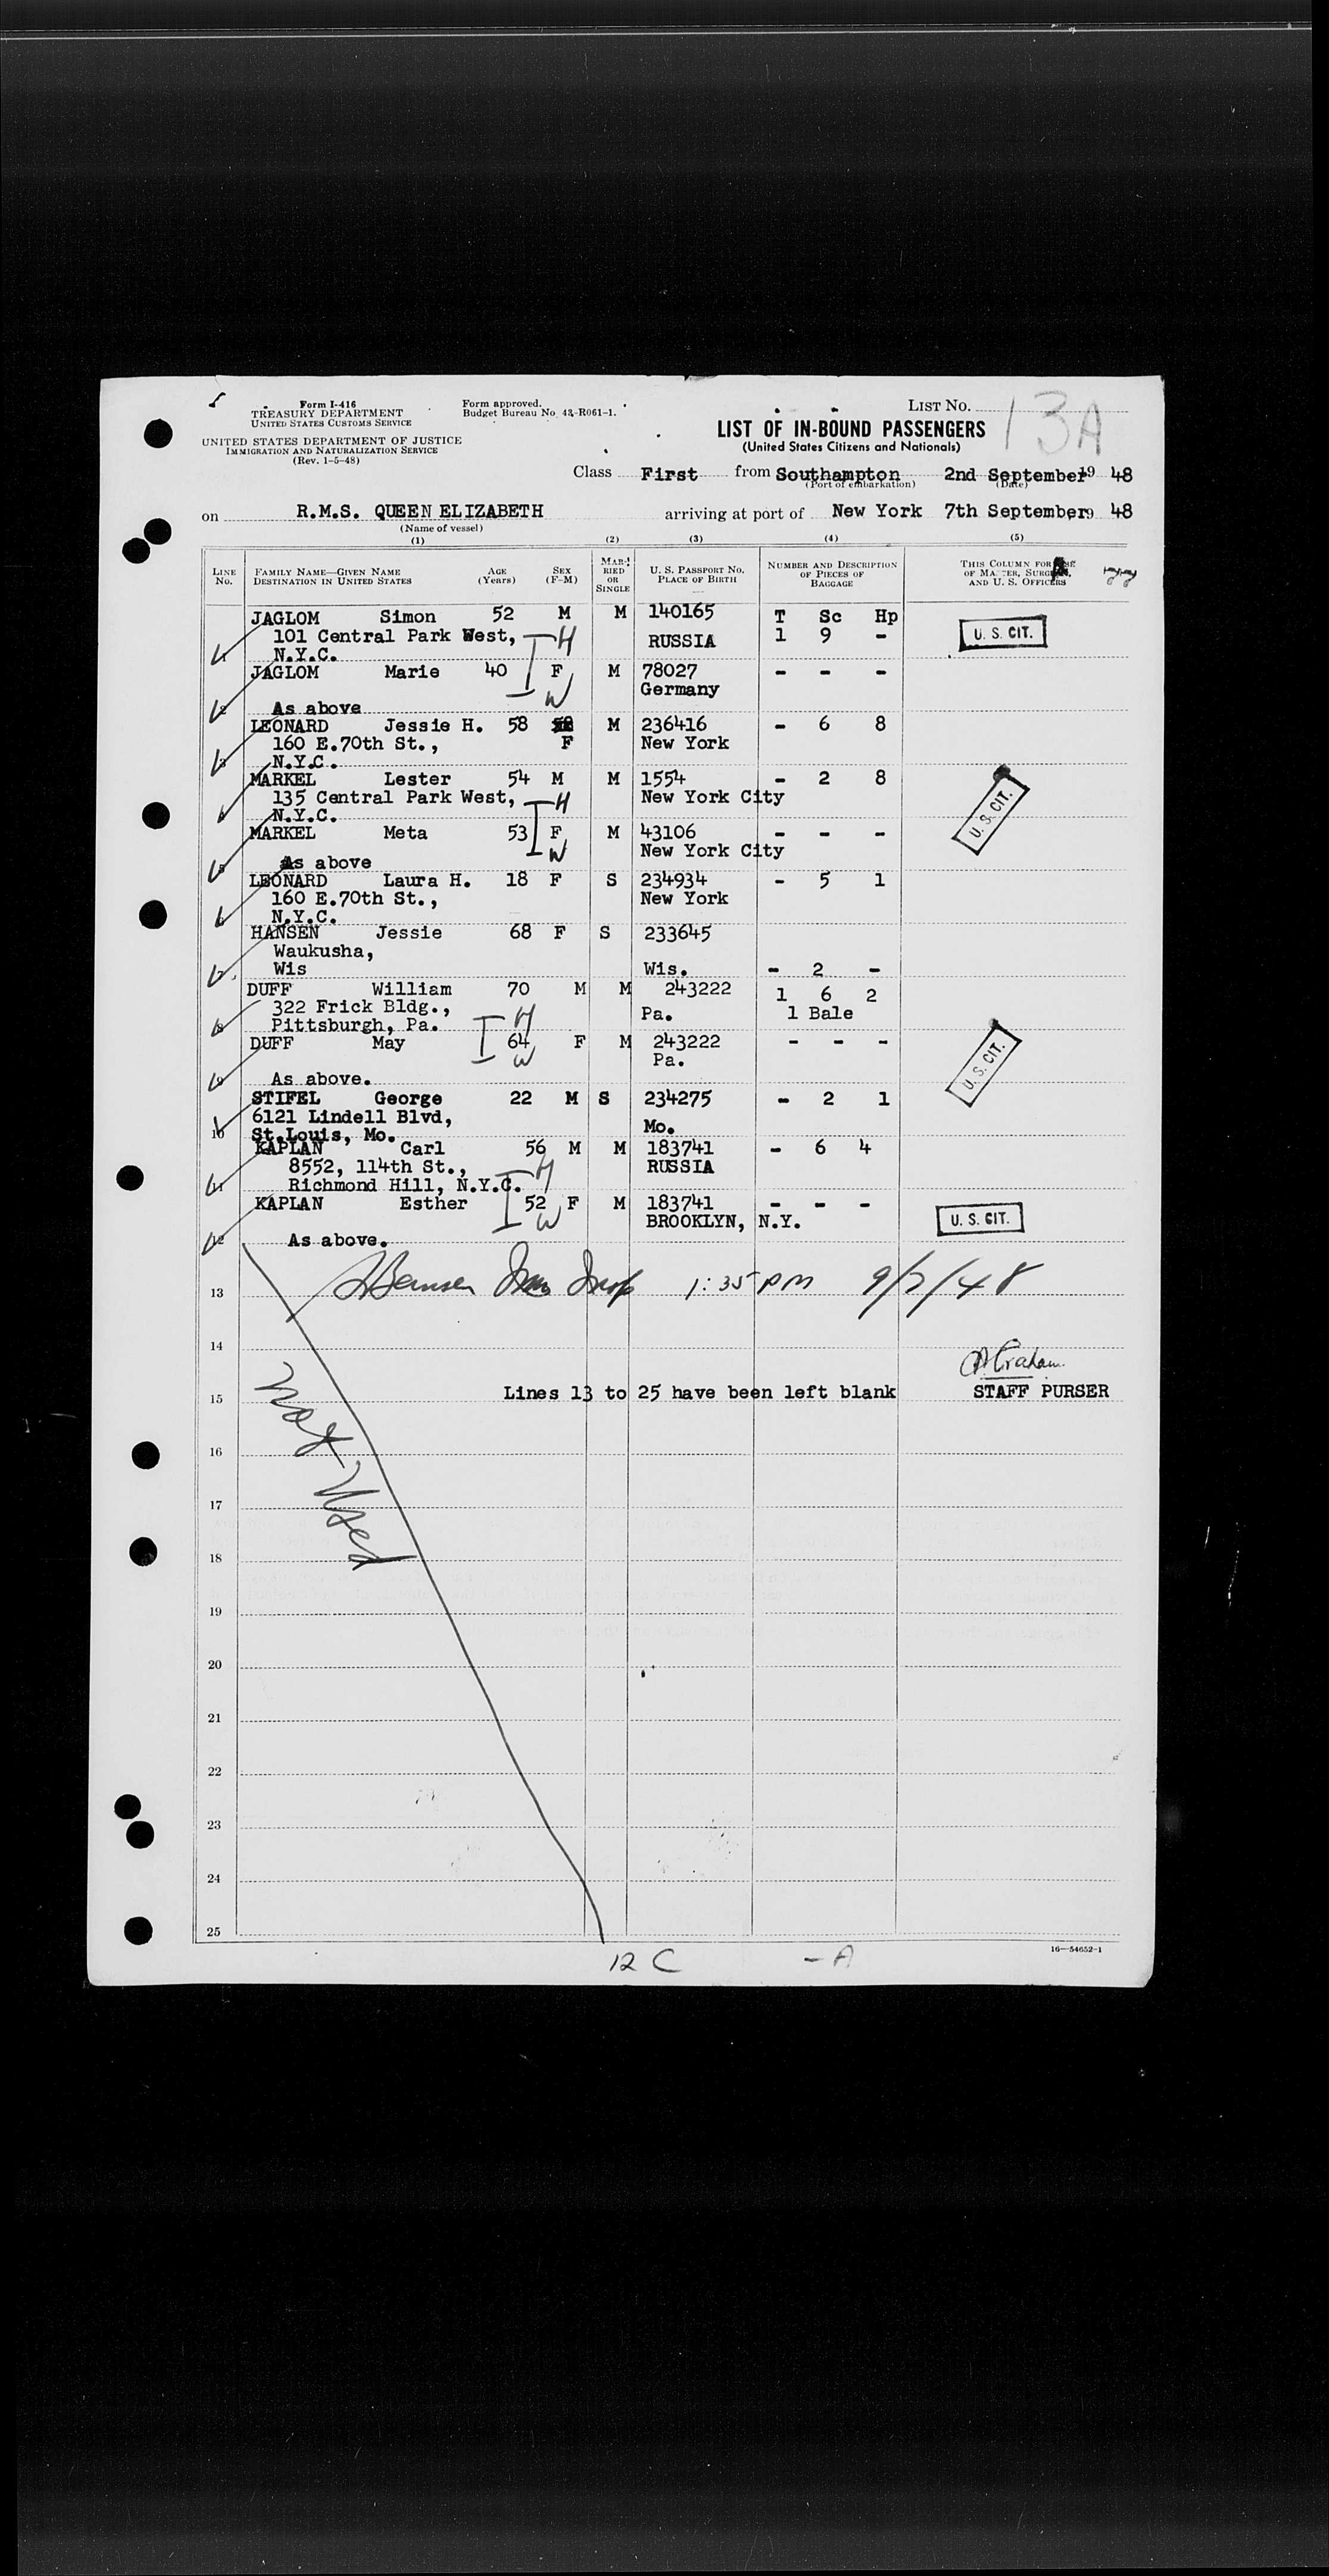 Form I-416
TREASURY DEPARTMENT
UNITED STATES CUSTOMS SERVICE
UNITED STATES DEPARTMENT OF JUSTICE
IMMIGRATION AND NATURALIZATION SERVICE
(Rev. 1-5-48)
Form approved.
Budget Bureau No. 43-R061-1.
LIST NO. 13A
LIST OF IN-BOUND PASSENGERS
(United States Citizens and Nationals)
Class First from Southampton 2nd September 19 48
(Port of embarkation) (Date)
on R.M.S. QUEEN ELIZABETH arriving at port of New York 7th September 19 48
(Name of vessel)
(1) (2) (3) (4) (5)
LINE No. FAMILY NAME—GIVEN NAME DESTINATION IN UNITED STATES AGE (Years) SEX (F-M) MARRIED OR SINGLE U. S. PASSPORT NO. PLACE OF BIRTH NUMBER AND DESCRIPTION OF PIECES OF BAGGAGE THIS COLUMN FOR USE OF MASTER, SURGEON, AND U. S. OFFICERS
JAGLOM Simon 52 M M 140165 T Sc Hp
101 Central Park West, H RUSSIA 1 9 - U. S. CIT.
1 N.Y.C.
JAGLOM Marie 40 F M 78027 - - -
W Germany
2 As above
LEONARD Jessie H. 58 M 236416 - 6 8
160 E.70th St., F New York
3 N.Y.C.
MARKEL Lester 54 M M 1554 - 2 8
135 Central Park West, H New York City U. S. CIT.
4 N.Y.C.
MARKEL Meta 53 F M 43106 - - -
W New York City
5 As above
LEONARD Laura H. 18 F S 234934 - 5 1
160 E.70th St., New York
6 N.Y.C.
HANSEN Jessie 68 F S 233645
Waukusha,
7 Wis Wis. - 2 -
DUFF William 70 M M 243222 1 6 2
322 Frick Bldg., H Pa. 1 Bale
8 Pittsburgh, Pa.
DUFF May 64 F M 243222 - - -
W Pa. U. S. CIT.
9 As above.
STIFEL George 22 M S 234275 - 2 1
6121 Lindell Blvd,
10 St.Louis, Mo. Mo.
KAPLAN Carl 56 M M 183741 - 6 4
8552, 114th St., H RUSSIA
11 Richmond Hill, N.Y.C.
KAPLAN Esther 52 F M 183741 - - -
W BROOKLYN, N.Y. U. S. CIT.
12 As above.
13 1:35 PM 9/7/48
14
Graham
15 Lines 13 to 25 have been left blank STAFF PURSER
Not Used
16
17
18
19
20
21
22
23
24
25
12 C - A
16—54652-1